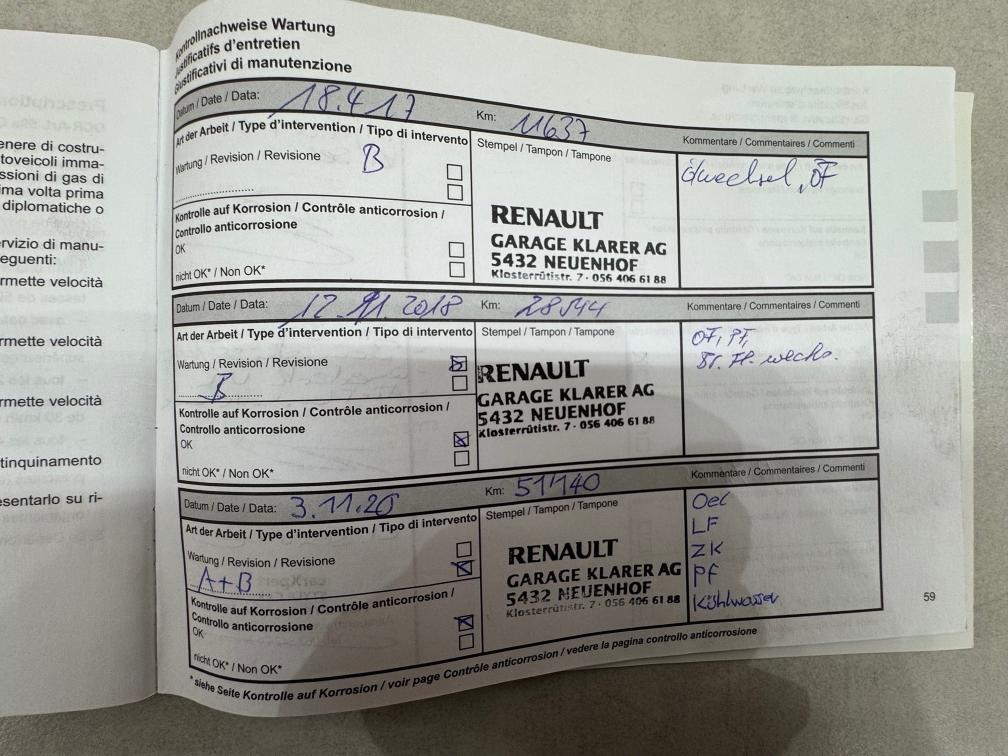 enere di costru-
toveicoli imma-
ssioni di gas di
ima volta prima
diplomatiche o
rvizio di manu-
eguenti:
rmette velocità
rmette velocità
rmette velocità
tinquinamento
esentarlo su ri-
Kontrollnachweise Wartung
Justificatifs d'entretien
Giustificativi di manutenzione
Datum / Date / Data: 18.4.17 Km: 11637 Kommentare / Commentaires / Commenti
Art der Arbeit / Type d'intervention / Tipo di intervento Stempel / Tampon / Tampone
Wartung / Revision / Revisione B
Ölwechsel, ÖF
Kontrolle auf Korrosion / Contrôle anticorrosion /
Controllo anticorrosione
OK
nicht OK* / Non OK*
RENAULT
GARAGE KLARER AG
5432 NEUENHOF
Klosterrütistr. 7 · 056 406 61 88
Datum / Date / Data: 12.11.2018 Km: 28544 Kommentare / Commentaires / Commenti
Art der Arbeit / Type d'intervention / Tipo di intervento Stempel / Tampon / Tampone
Wartung / Revision / Revisione
B
ÖF, PF,
Br. Fl. wechs.
Kontrolle auf Korrosion / Contrôle anticorrosion /
Controllo anticorrosione
OK
nicht OK* / Non OK*
RENAULT
GARAGE KLARER AG
5432 NEUENHOF
Klosterrütistr. 7 · 056 406 61 88
Datum / Date / Data: 3.11.20 Km: 51140 Kommentare / Commentaires / Commenti
Art der Arbeit / Type d'intervention / Tipo di intervento Stempel / Tampon / Tampone
Wartung / Revision / Revisione
A+B
Kontrolle auf Korrosion / Contrôle anticorrosion /
Controllo anticorrosione
OK
nicht OK* / Non OK*
RENAULT
GARAGE KLARER AG
5432 NEUENHOF
Klosterrütistr. 7 · 056 406 61 88
Oel
LF
ZK
PF
Kühlwasser
59
* siehe Seite Kontrolle auf Korrosion / voir page Contrôle anticorrosion / vedere la pagina controllo anticorrosione